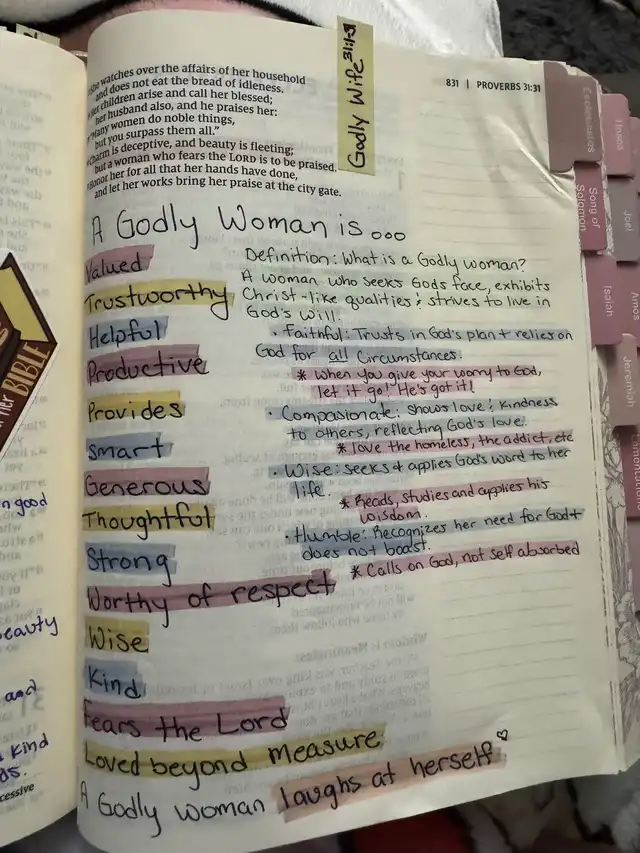 she watches over the affairs of her household
and does not eat the bread of idleness.
Her children arise and call her blessed;
her husband also, and he praises her:
"Many women do noble things,
but you surpass them all."
Charm is deceptive, and beauty is fleeting;
but a woman who fears the LORD is to be praised.
Honor her for all that her hands have done,
and let her works bring her praise at the city gate.
Godly Wife
831 | PROVERBS 31:31
A Godly Woman is...
Valued
Trustworthy
Helpful
Productive
Provides
Smart
Generous
Thoughtful
Strong
Worthy of respect
Wise
Kind
Fears the Lord
Loved beyond measure
A Godly woman laughs at herself
Definition: What is a Godly woman?
A woman who seeks Gods face, exhibits
Christ-like qualities & strives to live in
God's will.
· Faithful: Trusts in God's plan + relies on
God for all Circumstances.
* when you give your worry to God,
let it go! He's got it!
· Compasionate: shows love & kindness
to others, reflecting God's love.
* love the homeless, the addict, etc
· Wise: seeks & applies God's word to her
life.
* Reads, studies and applies his
wisdom.
· Humble: Recognizes her need for God +
does not boast.
* Calls on God, not self absorbed
Ecclesiastes
Song of
Solomon
Isaiah
Jeremiah
Hosea
Joel
Amos
her BIBLE
good
beauty
and
Kind